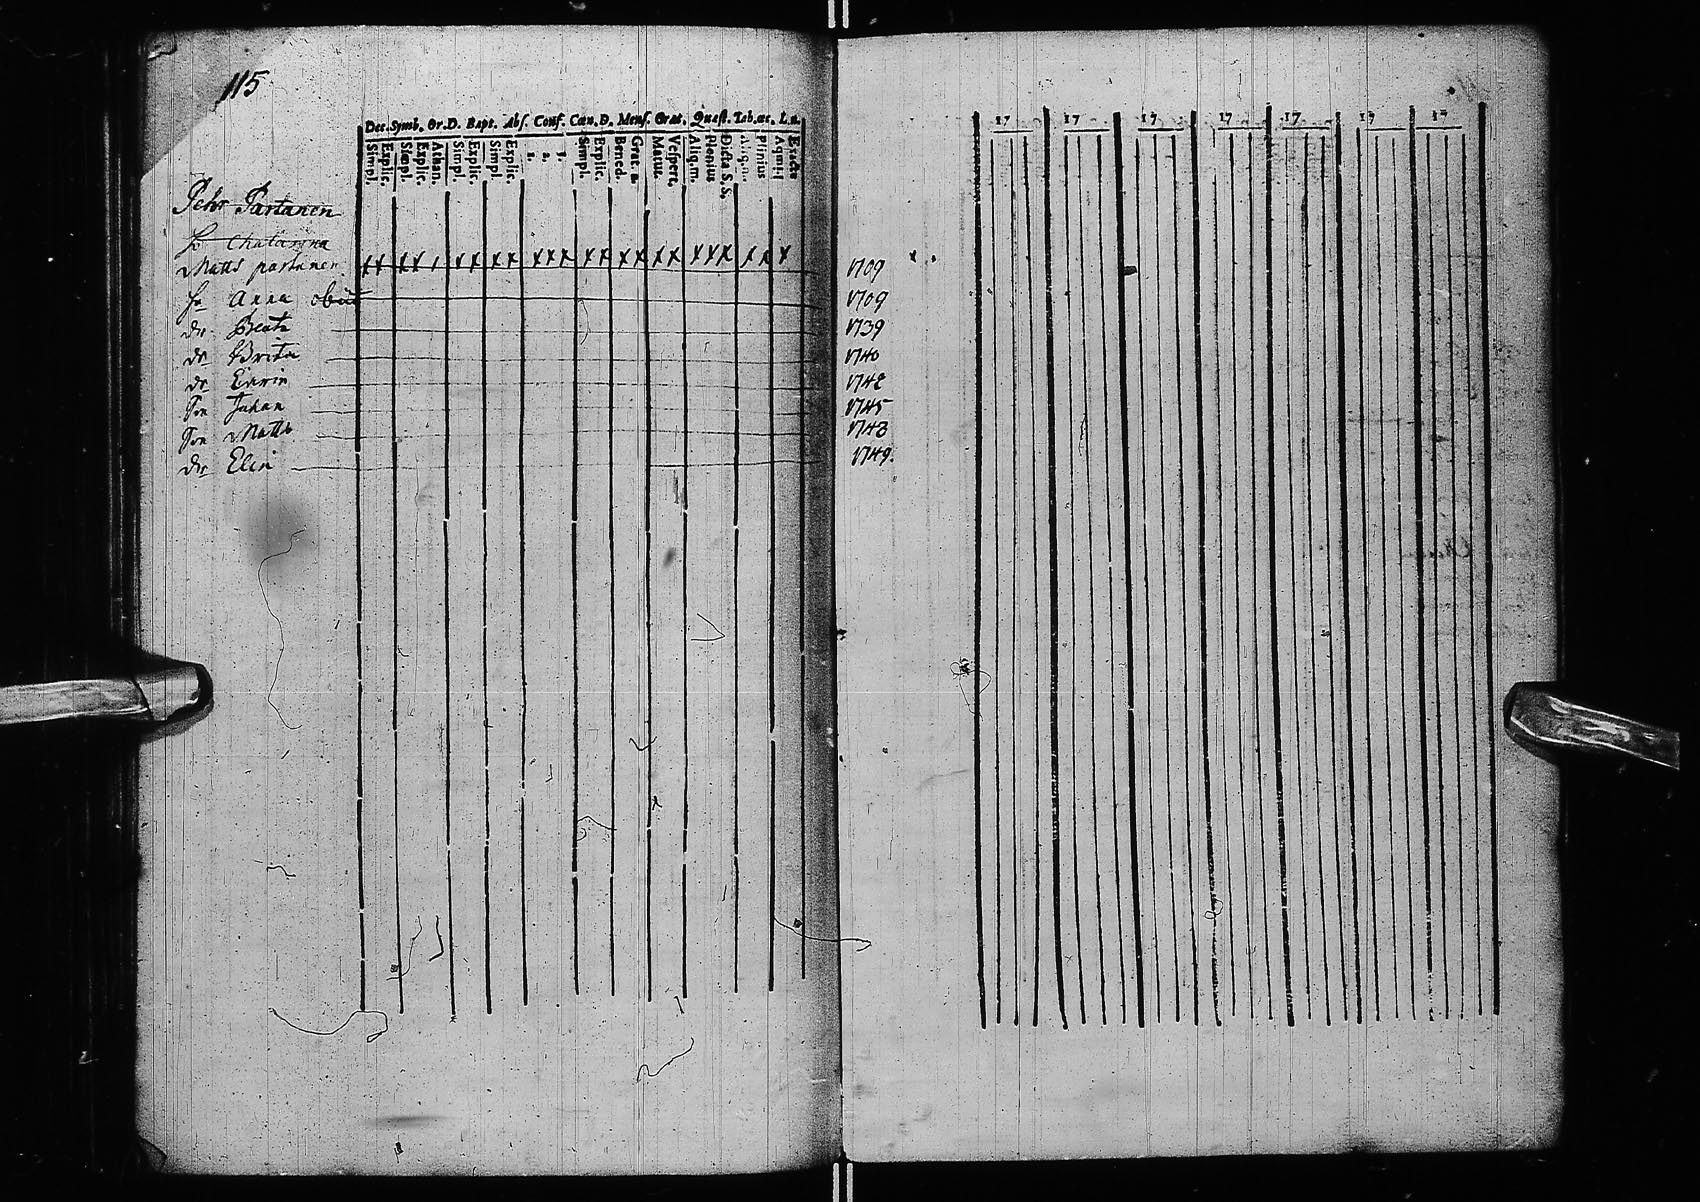 115
Dec. Symb. Or. D. Bapt. Abs. Conf. Cœn. D. Mens. Grat. Quæst. Tab. œc. L. n.
Simpl. Explic. Simpl. Explic. Athan. Simpl. Explic. Simpl. Explic. 1. 2. 3. Simpl. Explic. Bened. Grat. a. Matut. Vespert. Aliq. m. Plenius Dicta S. S. Plenius Exacte
17 17 17 17 17 17 17
Pehr Partanen
h Chatarina
Matts partanen x x x x x x x x x x x x x x x x x x x x x x x 1709
hu Anna obiit 1709
dr Beata 1739
dr Brita 1740
dr Carin 1742
Son Johan 1745
Son Matts 1748
dr Elin 1749.